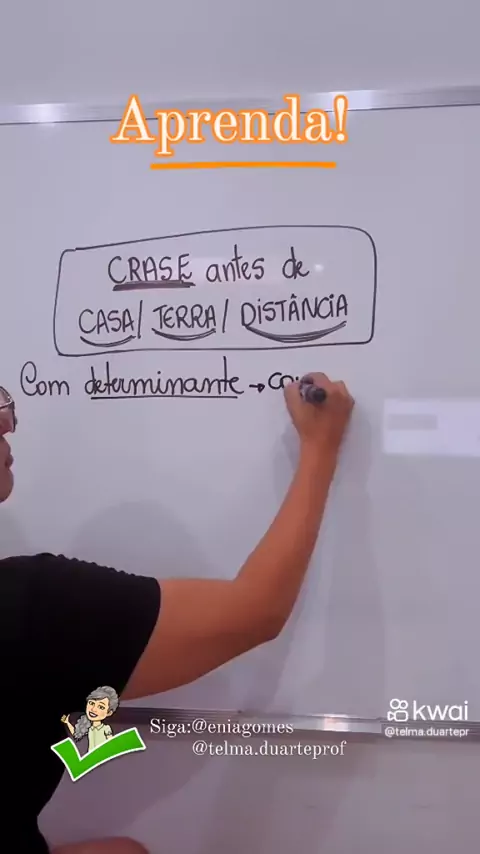 Aprenda!
CRASE antes de
CASA/ TERRA/ DISTÂNCIA
Com determinante →
Siga:@eniagomes
@telma.duarteprof
kwai
@telma.duartepr